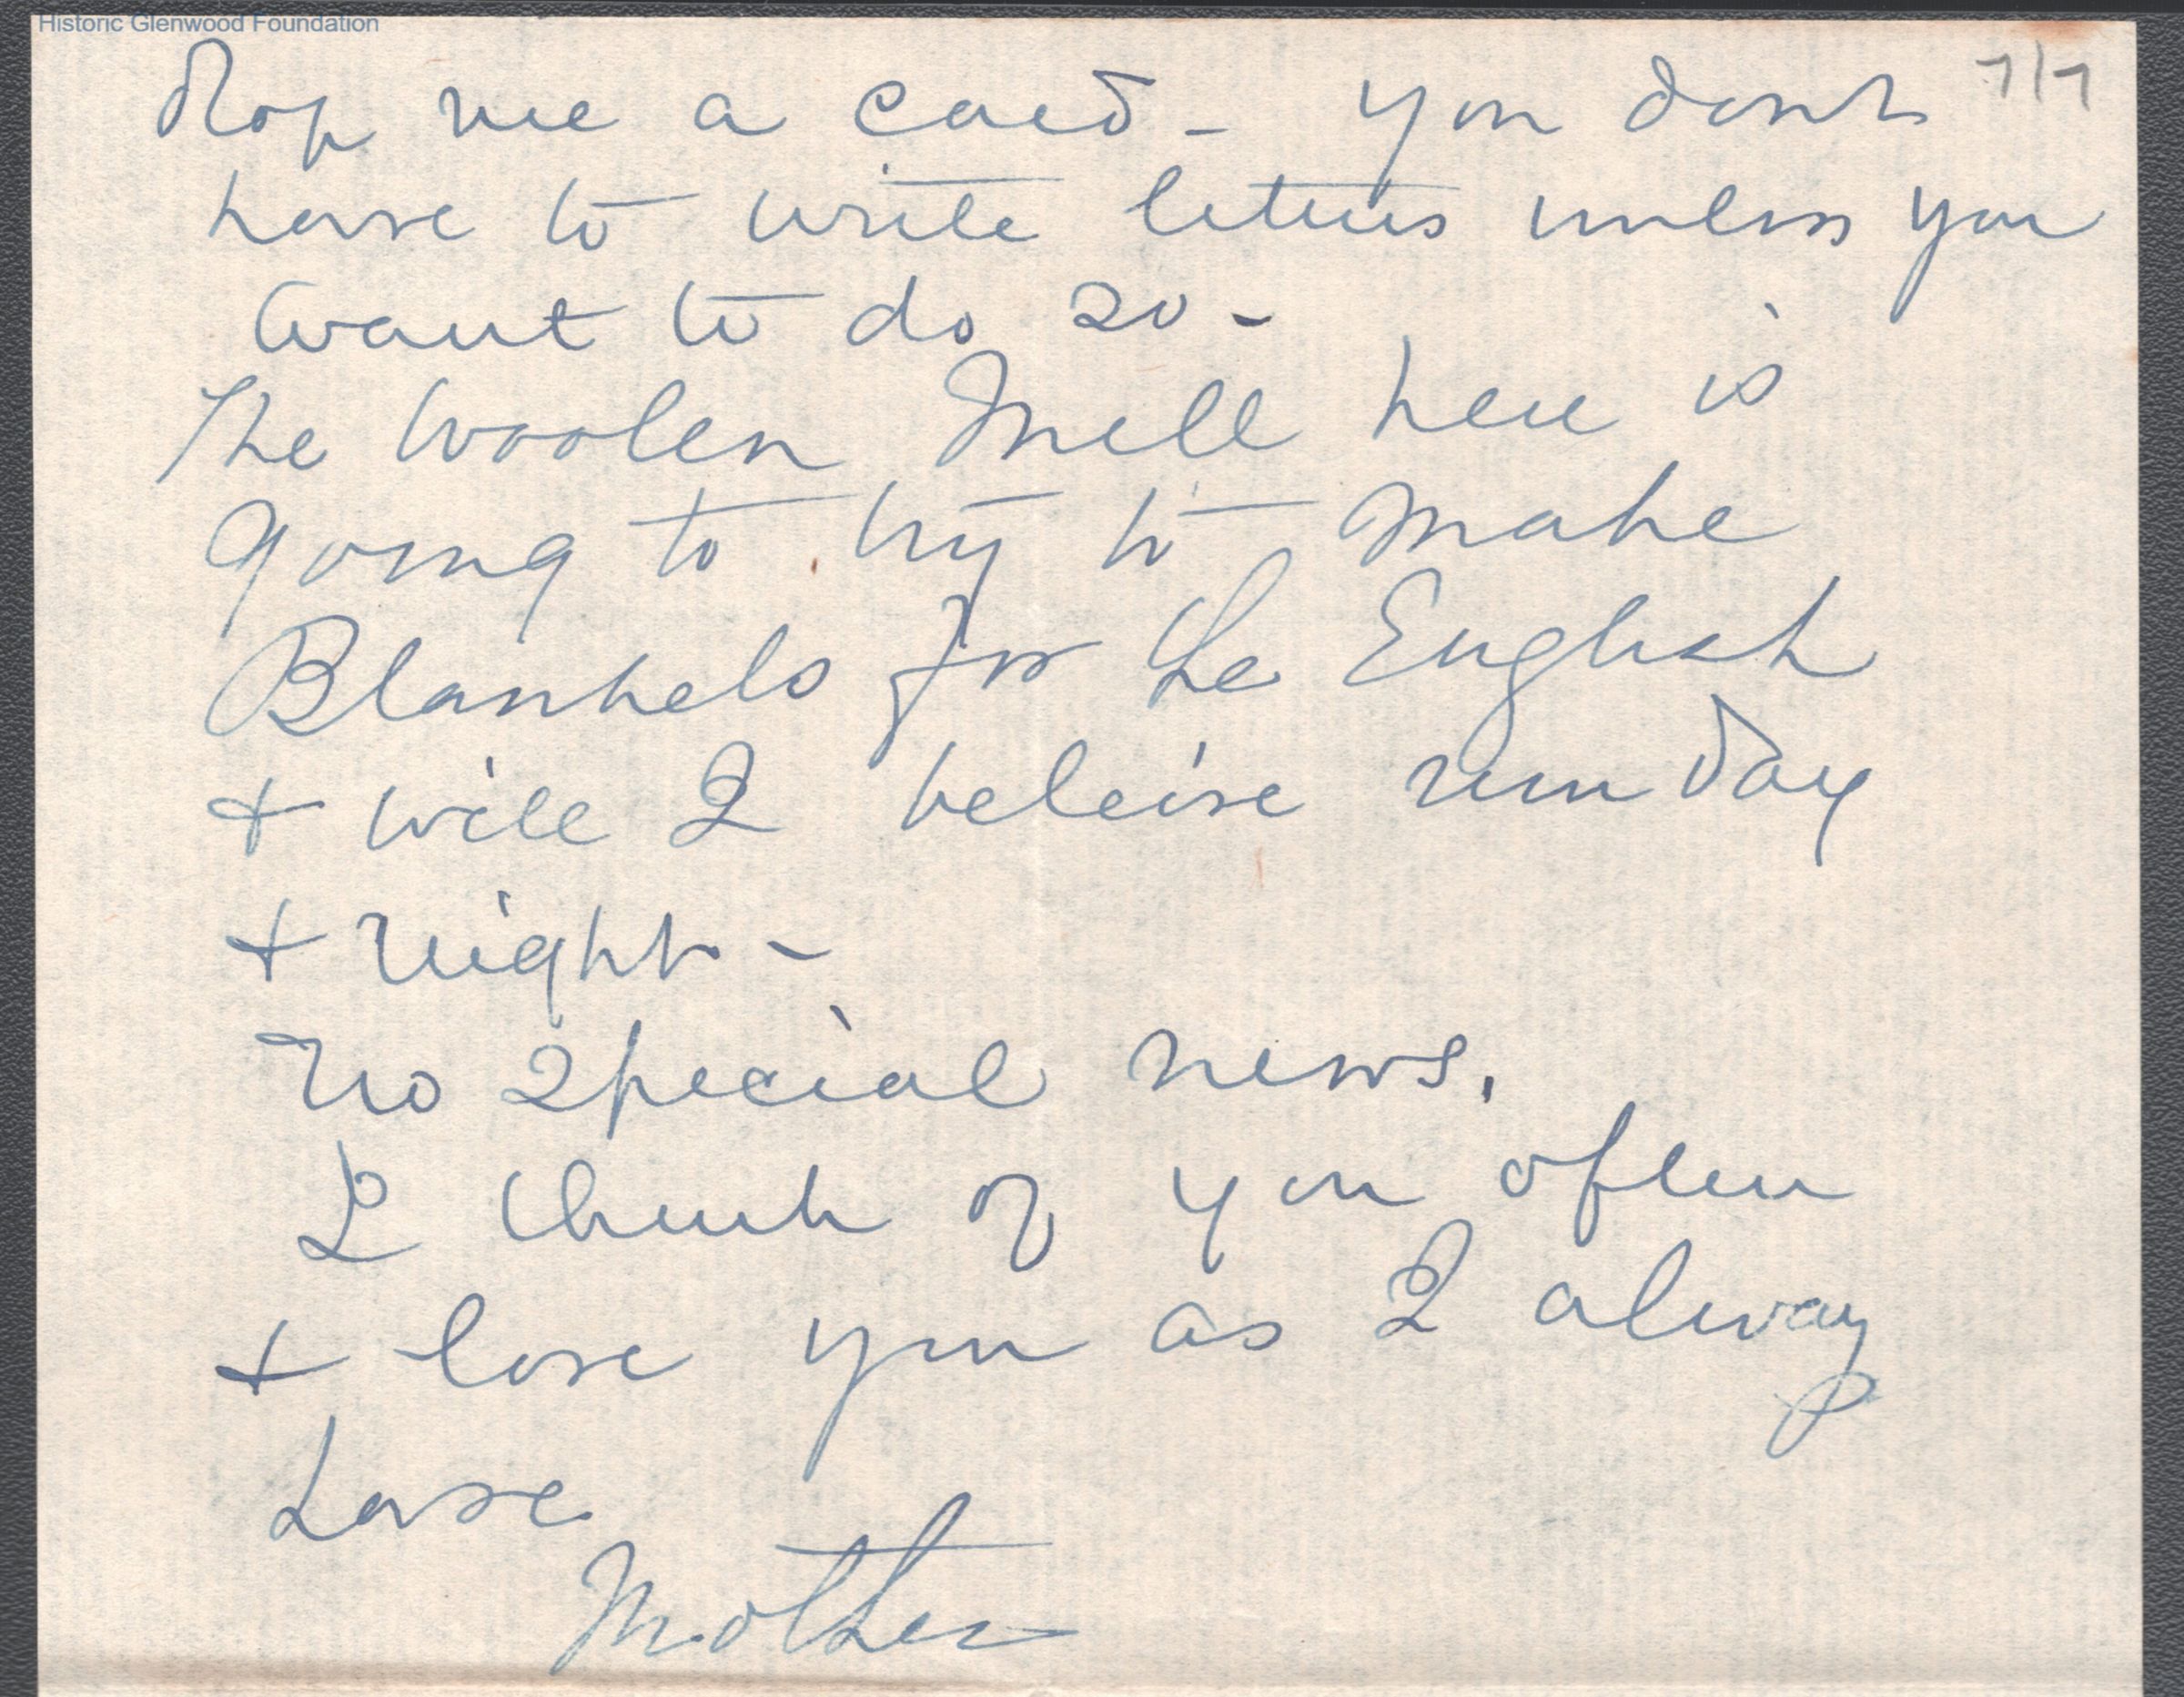 Historic Glenwood Foundation
7/7
drop me a card - you dont
have to write letters unless you
want to do so -
The Woolen Mill here is
going to try to make
Blankets for the English
+ will I beleive run day
+ night -
No special news.
I think of you often
+ love you as I always
Love
Mother